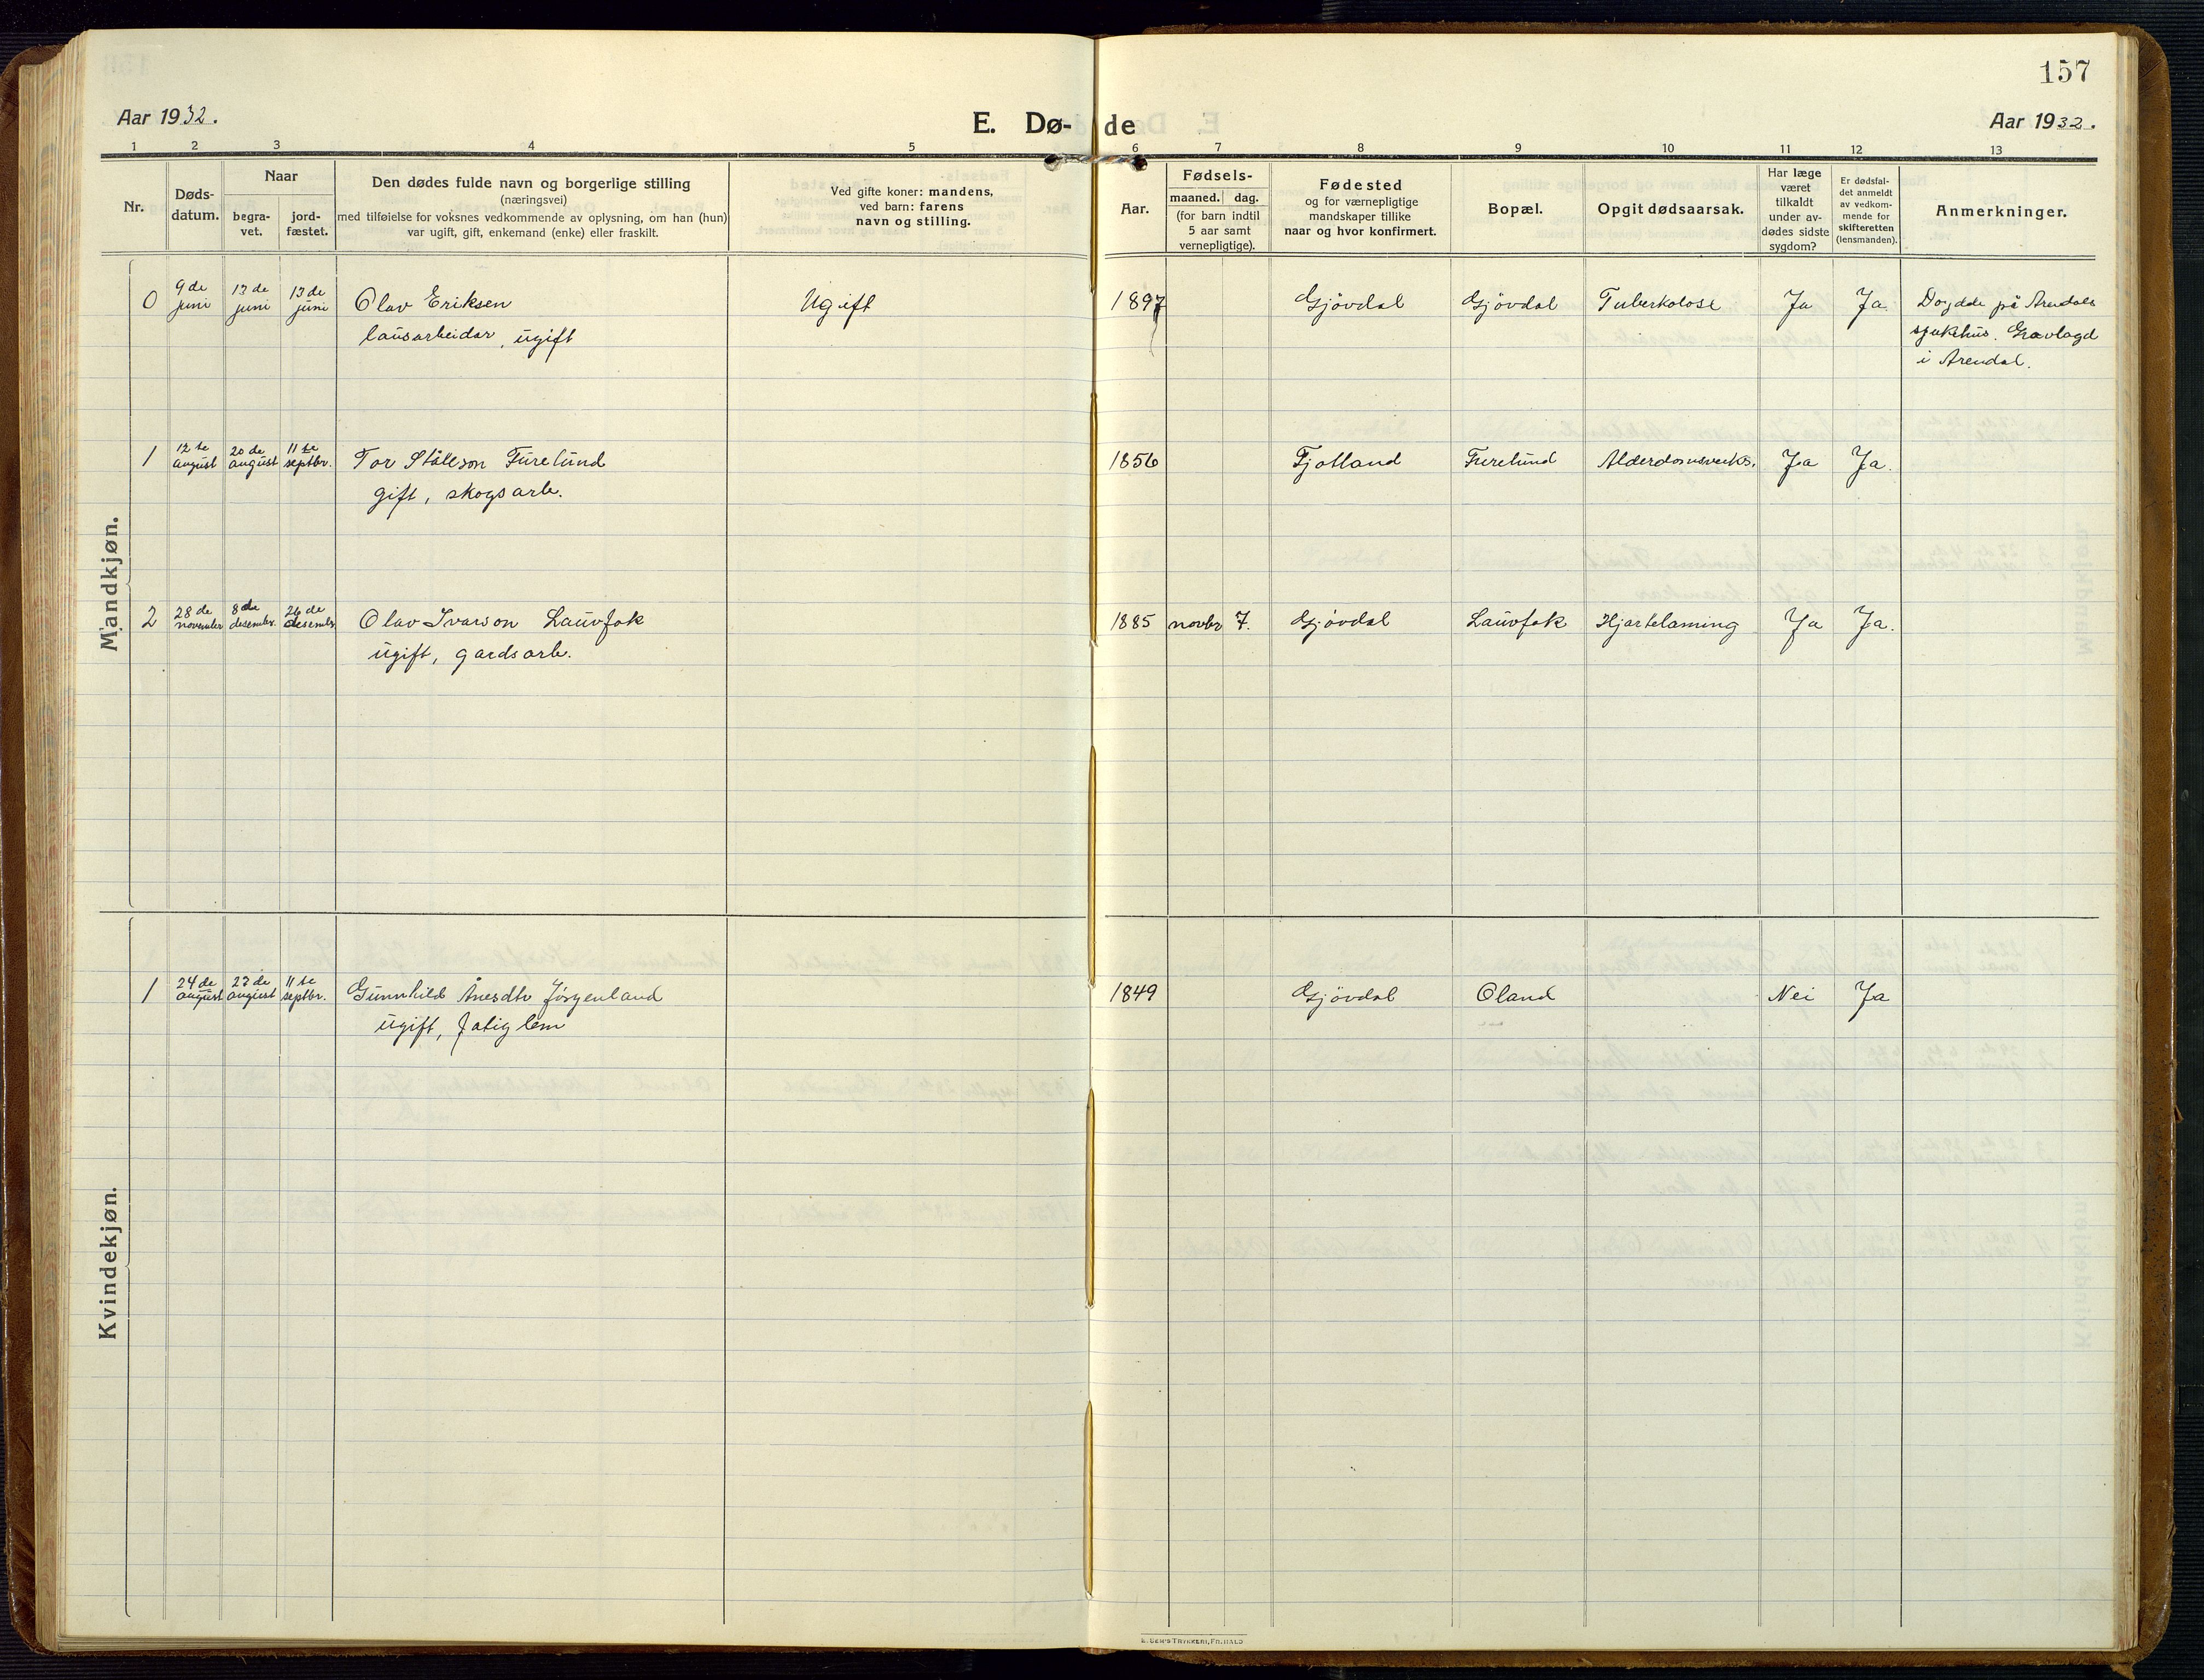 157
Aar 1932.
E. Dø-
de
Aar 1932.
1 2 3 4 5 6 7 8 9 10 11 12 13
Nr.
Døds-
datum.
Naar
begra-
vet.
jord-
fæstet.
Den dødes fulde navn og borgerlige stilling
(næringsvei)
med tilføielse for voksnes vedkommende av oplysning, om han (hun)
var ugift, gift, enkemand (enke) eller fraskilt.
Ved gifte koner: mandens,
ved barn: farens
navn og stilling.
Aar.
Fødsels-
maaned. dag.
(for barn indtil
5 aar samt
vernepligtige).
Fødested
og for værnepligtige
mandskaper tillike
naar og hvor konfirmert.
Bopæl.
Opgit dødsaarsak.
Har læge
været
tilkaldt
under av-
dødes sidste
sygdom?
Er dødsfal-
det anmeldt
av vedkom-
mende for
skifteretten
(lensmanden).
Anmerkninger.
Mandkjøn.
0
9de
juni
13de
juni
13de
juni
Olav Eriksen
lausarbeidar, ugift
Ugift
1897
Gjövdal
Gjövdal
Tuberkolose
Ja
Ja.
Döydde på Arendals
sjukehus. Gravlagd
i Arendal.
1
12te
august
20de
august
11te
septbr.
Tor Ståleson Furelund
gift, skogsarb.
1856
Fjotland
Furelund
Ja
Ja.
2
28de
november
8de
desembr.
26de
desembr.
Olav Ivarson Lauvfok
ugift, gardsarb.
1885
novbr
7.
Gjövdal
Lauvfok
Hjartelaming
Ja
Ja.
Kvindekjøn.
1
24de
august
27de
august
11te
septbr.
Gunnhild Ånesdtr Jörgenland
ugift, fatiglem
1849
Gjövdal
Oland
Nei
Ja